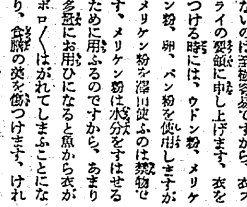 ないのは至極容易ですから、衣
ライの要領に申し上げます。衣を
つける時には、ウドン粉、メリケ
ン粉、卵、パン粉を使用しますが
メリケン粉を澤山使ふのは禁物で
す、メリケン粉は水分をすはせる
ために用ふるのですから、あまり
多量にお用ひになると魚から衣が
ボロ〳〵はがれてしまふことにな
り、食膳の美を傷つけます、けれ